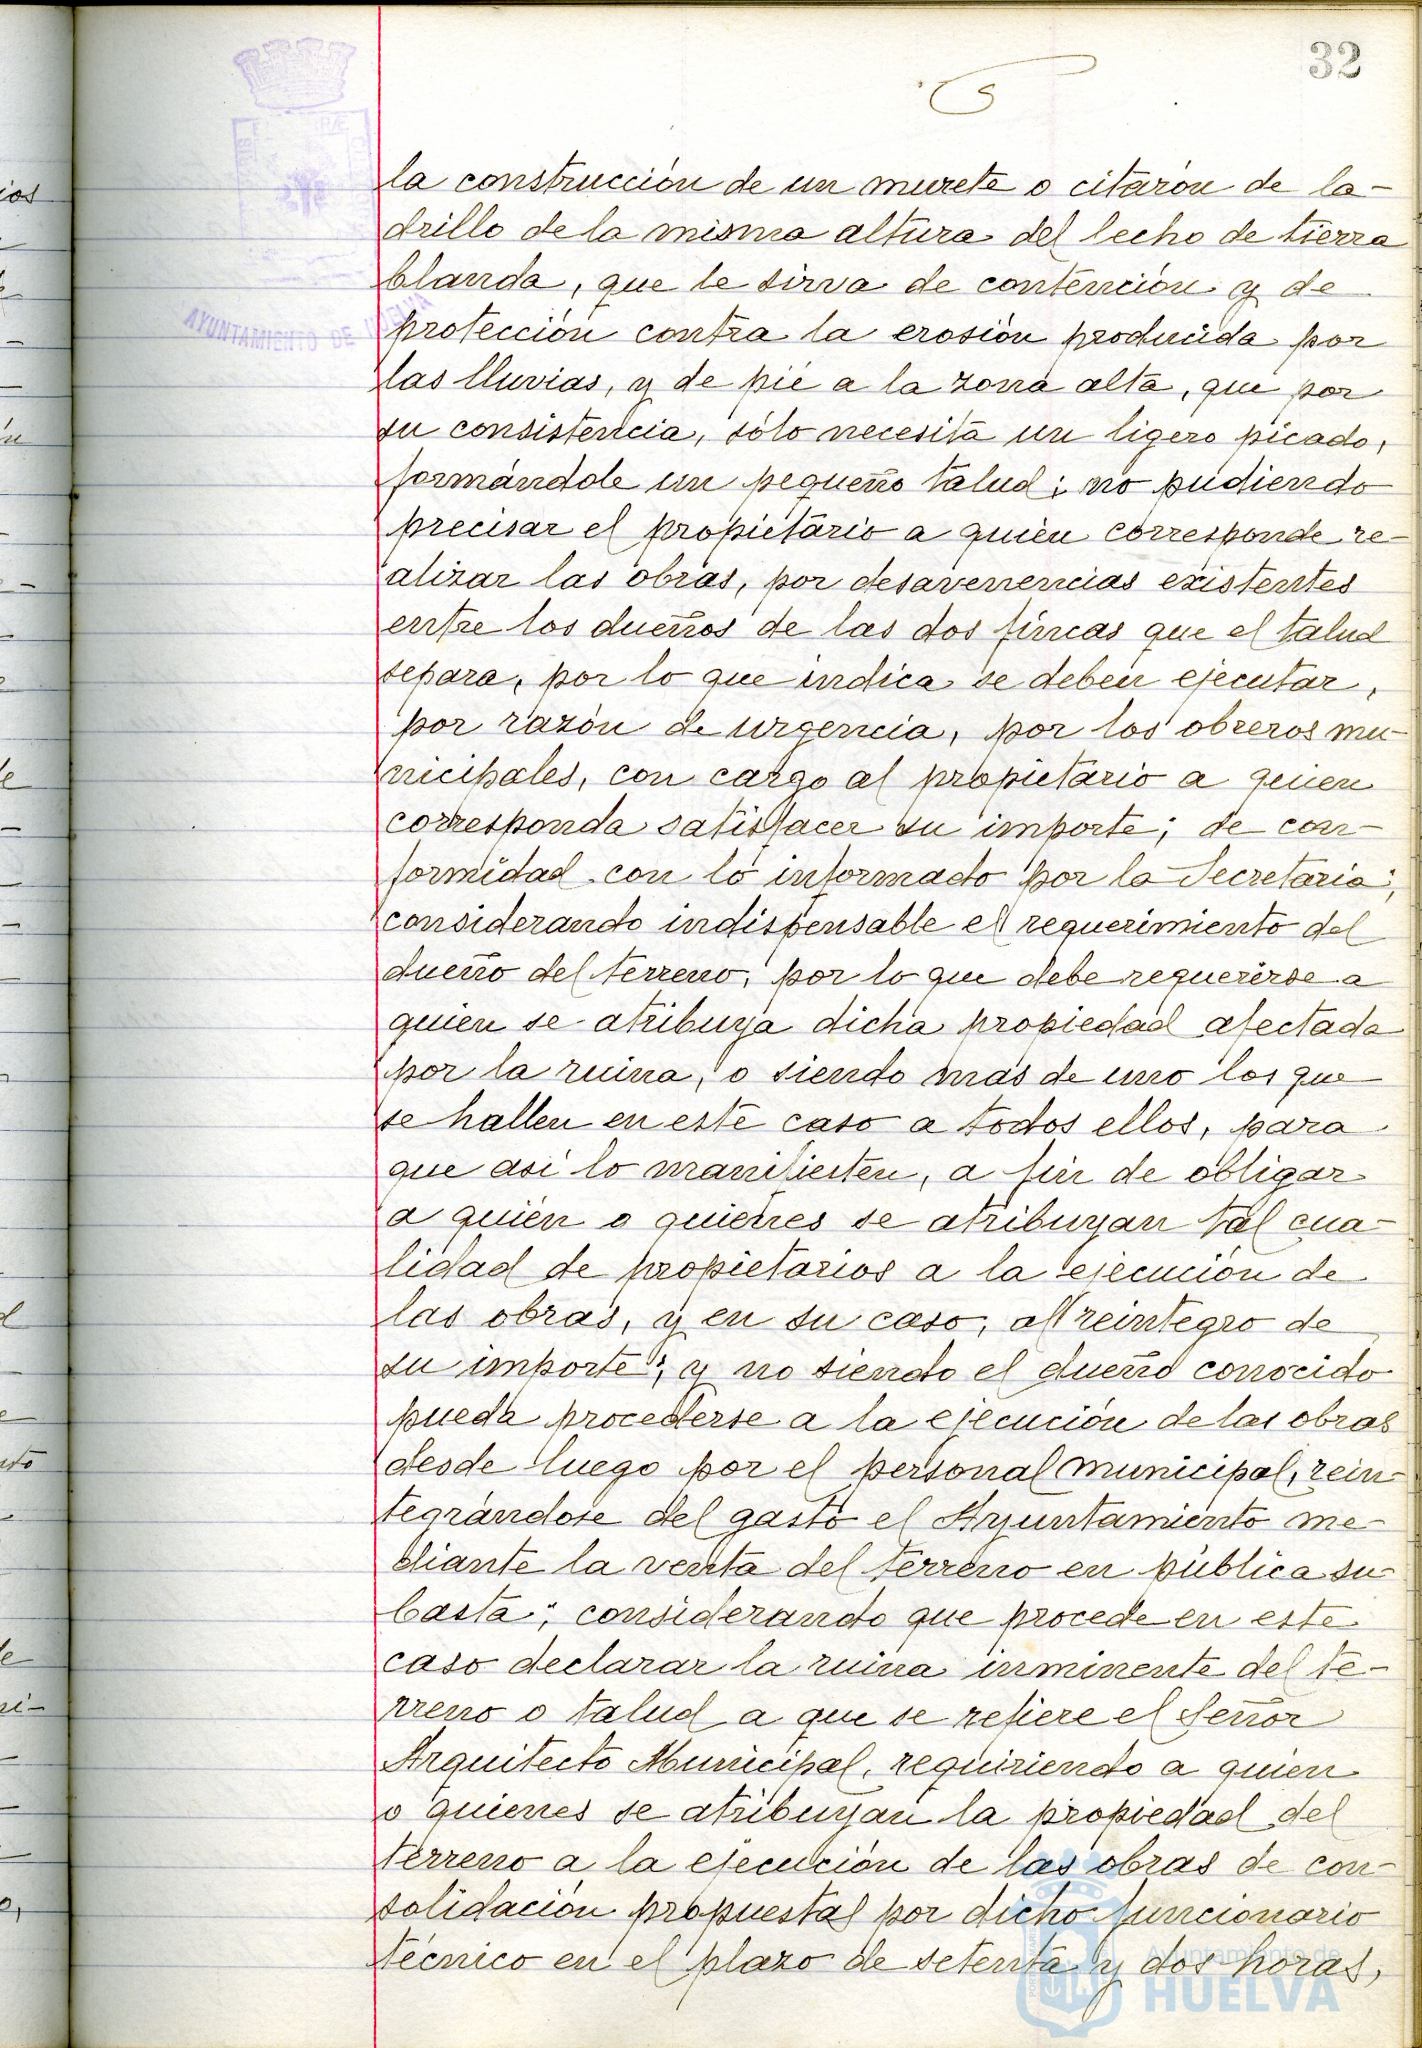 32
la construcción de un murete o citarón de la-
drillo de la misma altura del lecho de tierra
blanda, que le sirva de contención y de
protección contra la erosión producida por
las lluvias, y de pié a la zona alta, que por
su consistencia, sólo necesita un ligero picado,
formándole un pequeño talud; no pudiendo
precisar el propietario a quién corresponde re-
alizar las obras, por desavenencias existentes
entre los dueños de las dos fincas que el talud
separa, por lo que indica se deben ejecutar,
por razón de urgencia, por los obreros mu-
nicipales, con cargo al propietario a quien
corresponda satisfacer su importe; de con-
formidad con lo informado por la Secretaría;
considerando indispensable el requerimiento del
dueño del terreno, por lo que debe requerirse a
quien se atribuya dicha propiedad afectada
por la ruina, o siendo más de uno los que
se hallen en este caso a todos ellos, para
que así lo manifiesten, a fin de obligar
a quién o quienes se atribuyan tal cua-
lidad de propietarios a la ejecución de
las obras, y en su caso, al reintegro de
su importe; y no siendo el dueño conocido
pueda procederse a la ejecución de las obras
desde luego por el personal municipal, rein-
tegrándose del gasto el Ayuntamiento me-
diante la venta del terreno en pública su-
basta; considerando que procede en este
caso declarar la ruina inminente del te-
rreno o talud a que se refiere el Señor
Arquitecto Municipal, requiriendo a quien
o quienes se atribuyan la propiedad del
terreno a la ejecución de las obras de con-
solidación propuestas por dicho funcionario
técnico en el plazo de setenta y dos horas,
AYUNTAMIENTO DE HUELVA
Ayuntamiento de
HUELVA